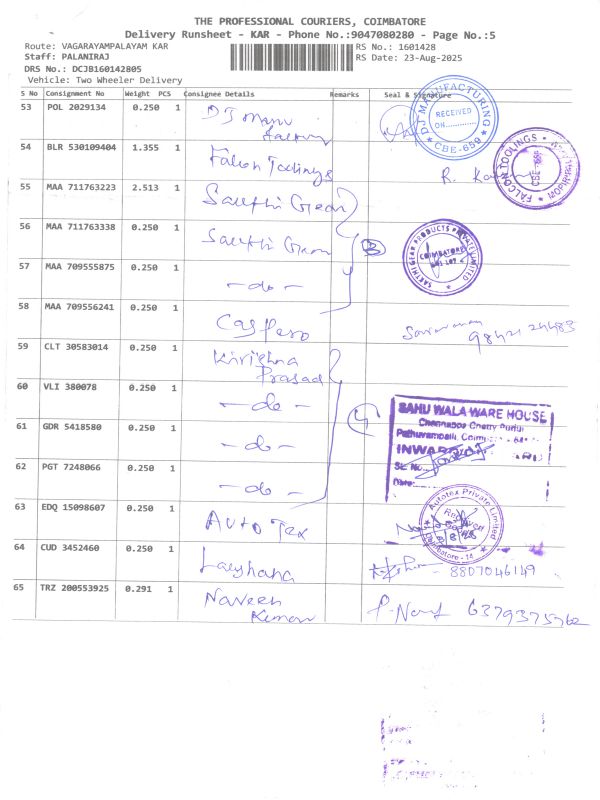 THE PROFESSIONAL COURIERS, COIMBATORE
Delivery Runsheet - KAR - Phone No.:9047080280 - Page No.:5
Route: VAGARAYAMPALAYAM KAR
RS No.: 1601428
Staff: PALANIRAJ
RS Date: 23-Aug-2025
DRS No.: DCJB160142805
Vehicle: Two Wheeler Delivery
S No Consignment No Weight PCS Consignee Details Remarks Seal & Signature
53 POL 2029134 0.250 1 DJ Manu
DJ MANUFACTURING RECEIVED ON CBE-659
54 BLR 530109404 1.355 1 Falcon Toolings
R.
FALCON TOOLINGS CBE-659
55 MAA 711763223 2.513 1 Sarthi Gear
56 MAA 711763338 0.250 1 Sarthi Gear
3
SARTHI GEAR PRODUCTS PRIVATE LIMITED COIMBATORE
57 MAA 709555875 0.250 1 - do -
58 MAA 709556241 0.250 1 Caspero
Saravanan
59 CLT 30583014 0.250 1 Krishna
Prasad
60 VLI 380078 0.250 1 - do -
4
61 GDR 5418580 0.250 1 - do -
SAHU WALA WARE HOUSE
62 PGT 7248066 0.250 1 - do -
63 EDQ 15098607 0.250 1 Auto Tex
Autotex Private Limited Coimbatore - 14
64 CUD 3452460 0.250 1
8807046149
65 TRZ 200553925 0.291 1 Naveen
Kumar
6379375762